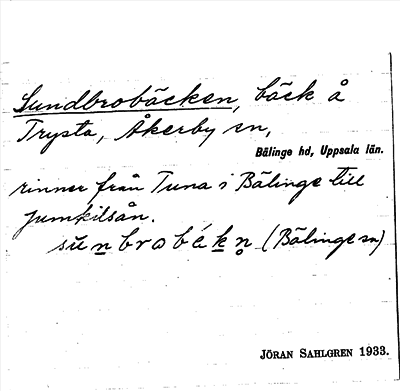 Sundbrobäcken, bäck å
Trysta, Åkerby sn,
Bälinge hd, Uppsala län.
rinner från Tuna i Bälinge till
Jumkilsån.
(Bälinge sn)
JÖRAN SAHLGREN 1933.